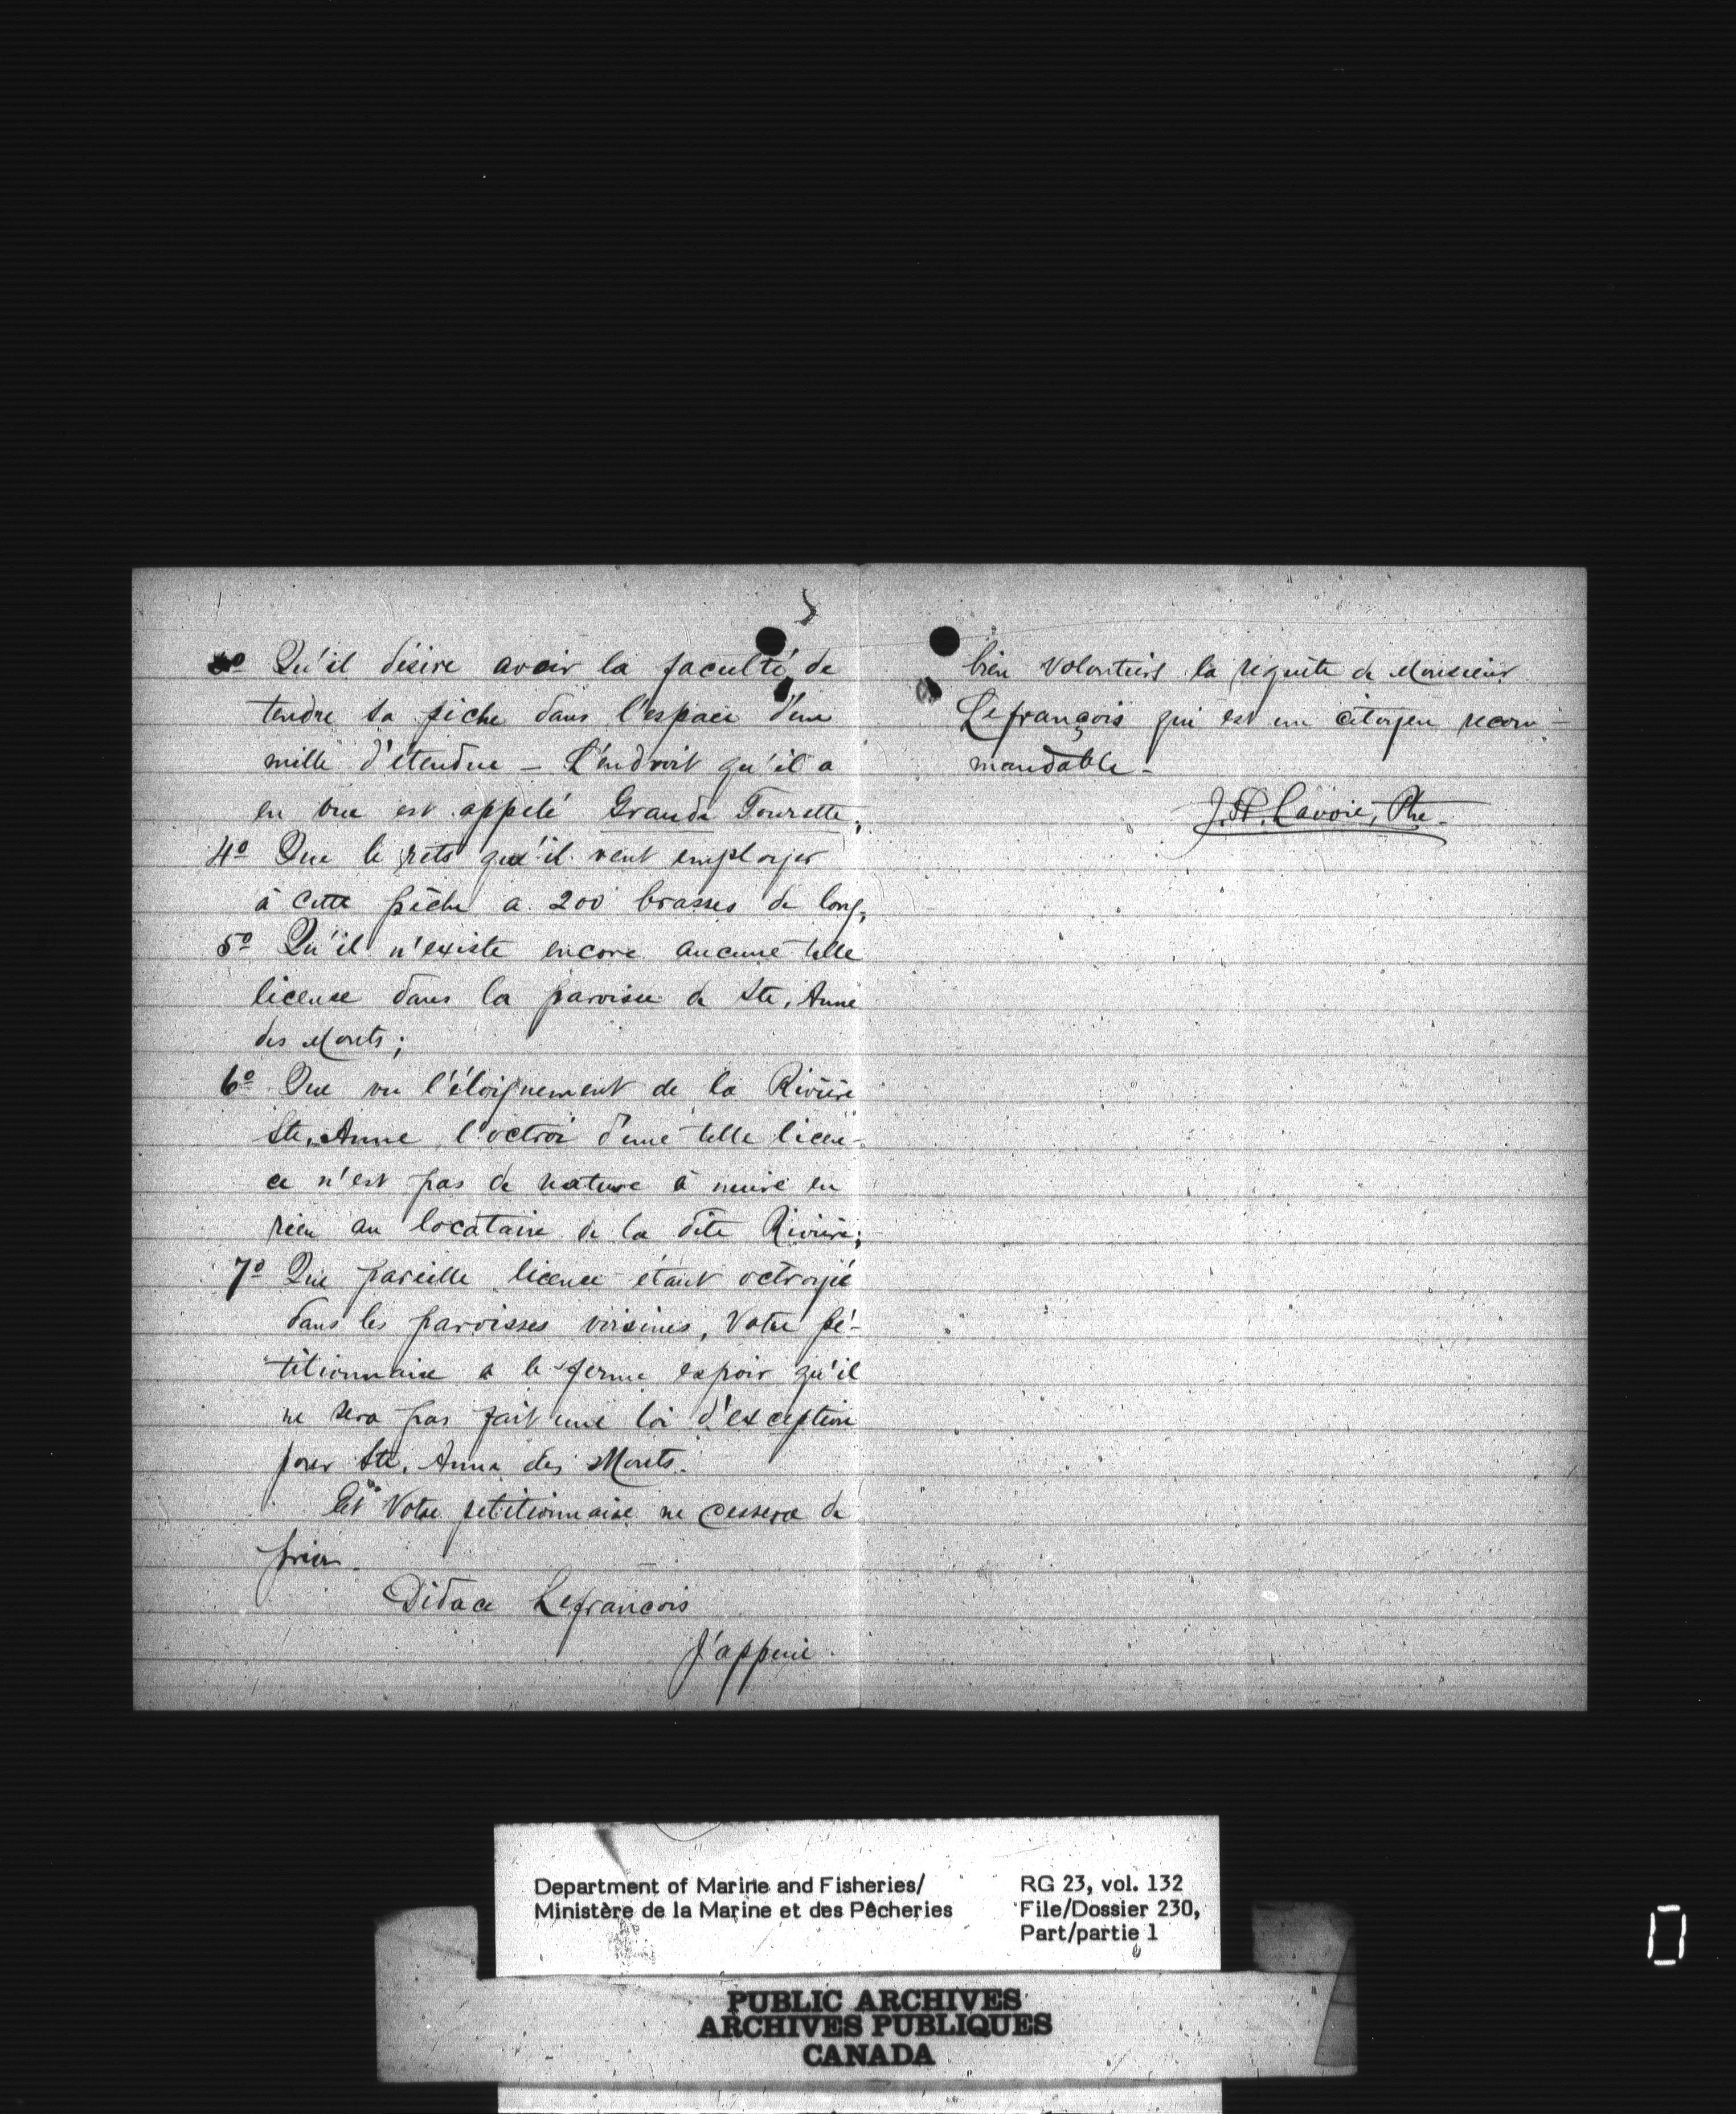 3º Qu'il désire avoir la faculté de
tendre sa pêche dans l'espace d'un
mille d'étendue – L'endroit qu'il a
en vue est appelé Grande Tourelle;
4º Que le rêts qu'il veut employer
à cette pêche a 200 brasses de long;
5º Qu'il n'existe encore aucune telle
license dans la paroisse de Ste. Anne
des Monts;
6º Que vu l'éloignement de la Rivière
Ste. Anne l'octroi d'une telle licen-
ce n'est pas de nature à nuire en
rien au locataire de la dite Rivière;
7º Que pareille licence étant octroyée
dans les paroisses voisines, Votre pé-
titionnaire a le ferme espoir qu'il
ne sera pas fait une loi d'exception
pour Ste. Anne des Monts.
Et Votre pétitionnaire ne cessera de
prier.
Didace Lefrancois
J'appuie
bien volontiers la requête de Monsieur
Lefrançois qui est un citoyen recom-
mandable.
J. A. Lavoie, Ptre.
Department of Marine and Fisheries/
Ministère de la Marine et des Pêcheries
RG 23, vol. 132
File/Dossier 230,
Part/partie 1
PUBLIC ARCHIVES
ARCHIVES PUBLIQUES
CANADA